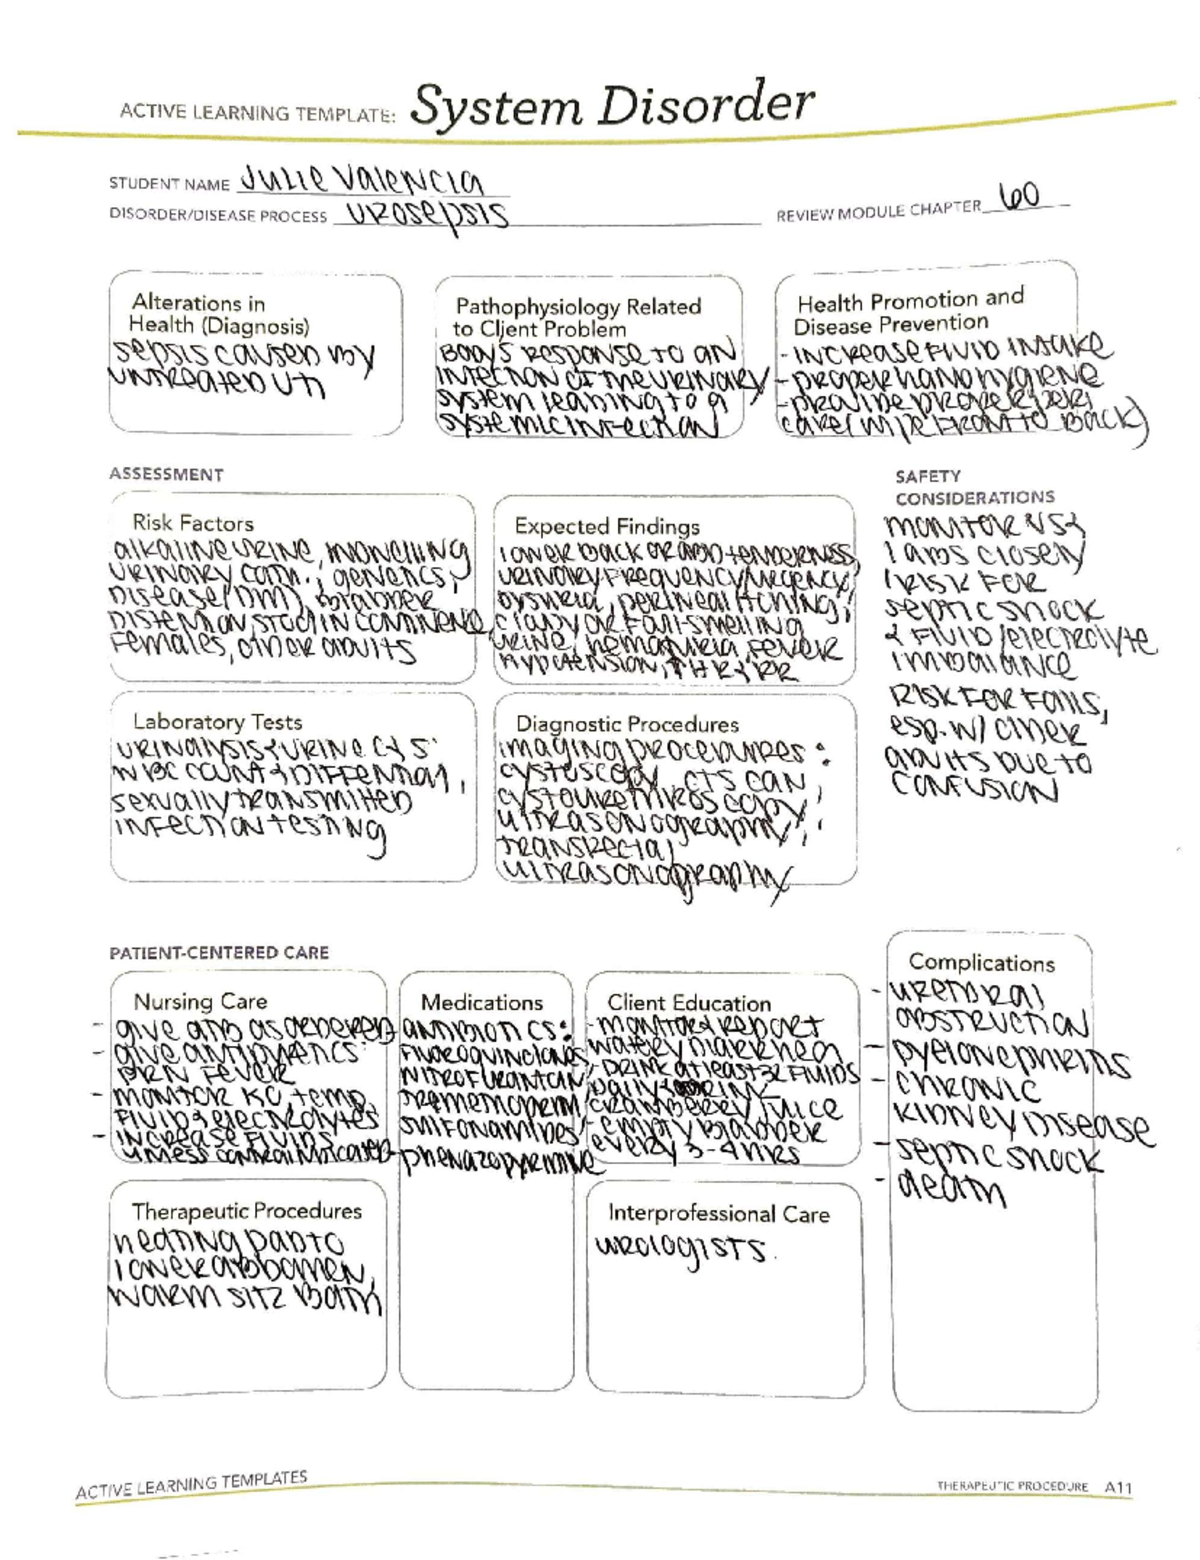 ACTIVE LEARNING TEMPLATE: System Disorder
STUDENT NAME Julie Valencia
DISORDER/DISEASE PROCESS Urosepsis
REVIEW MODULE CHAPTER 60
Alterations in
Health (Diagnosis)
sepsis caused by
untreated UTI
Pathophysiology Related
to Client Problem
Body's response to an
infection of the urinary
system leading to a
systemic infection
Health Promotion and
Disease Prevention
- increase fluid intake
- proper hand hygiene
- provide proper peri
care (wipe front to back)
ASSESSMENT
SAFETY
CONSIDERATIONS
Risk Factors
alkaline urine, indwelling
urinary cath., genetics,
disease (DM), bladder
distention, stool incontinence,
females, older adults
Expected Findings
lower back or abd tenderness,
urinary frequency/urgency,
dysuria, perineal itching,
cloudy or foul-smelling
urine, hematuria, fever
hypotension, ↑ HR & RR
monitor VS &
labs closely
(risk for
septic shock
& fluid/electrolyte
imbalance
Risk for falls,
esp. w/ older
adults due to
confusion
Laboratory Tests
urinalysis & urine C & S
WBC count &
sexually transmitted
infection testing
Diagnostic Procedures
imaging procedures:
cystoscopy, CT scan,
cystourethroscopy,
ultrasonography,
transrectal
ultrasonography
PATIENT-CENTERED CARE
Nursing Care
- give ATB as ordered
- give antipyretics
PRN fever
- monitor I&O, temp,
fluid & electrolytes
- increase fluids
unless contraindicated
Medications
antibiotics:
nitrofurantoin,
phenazopyridine
Client Education
- monitor & report
watery diarrhea
- drink at least 3L fluids
daily & drink
cranberry juice
- empty bladder
every 3-4 hrs
Complications
- urethral
obstruction
- pyelonephritis
- chronic
kidney disease
- septic shock
- death
Therapeutic Procedures
heating pad to
lower abdomen,
warm sitz bath
Interprofessional Care
urologists.
ACTIVE LEARNING TEMPLATES
THERAPEUTIC PROCEDURE A11